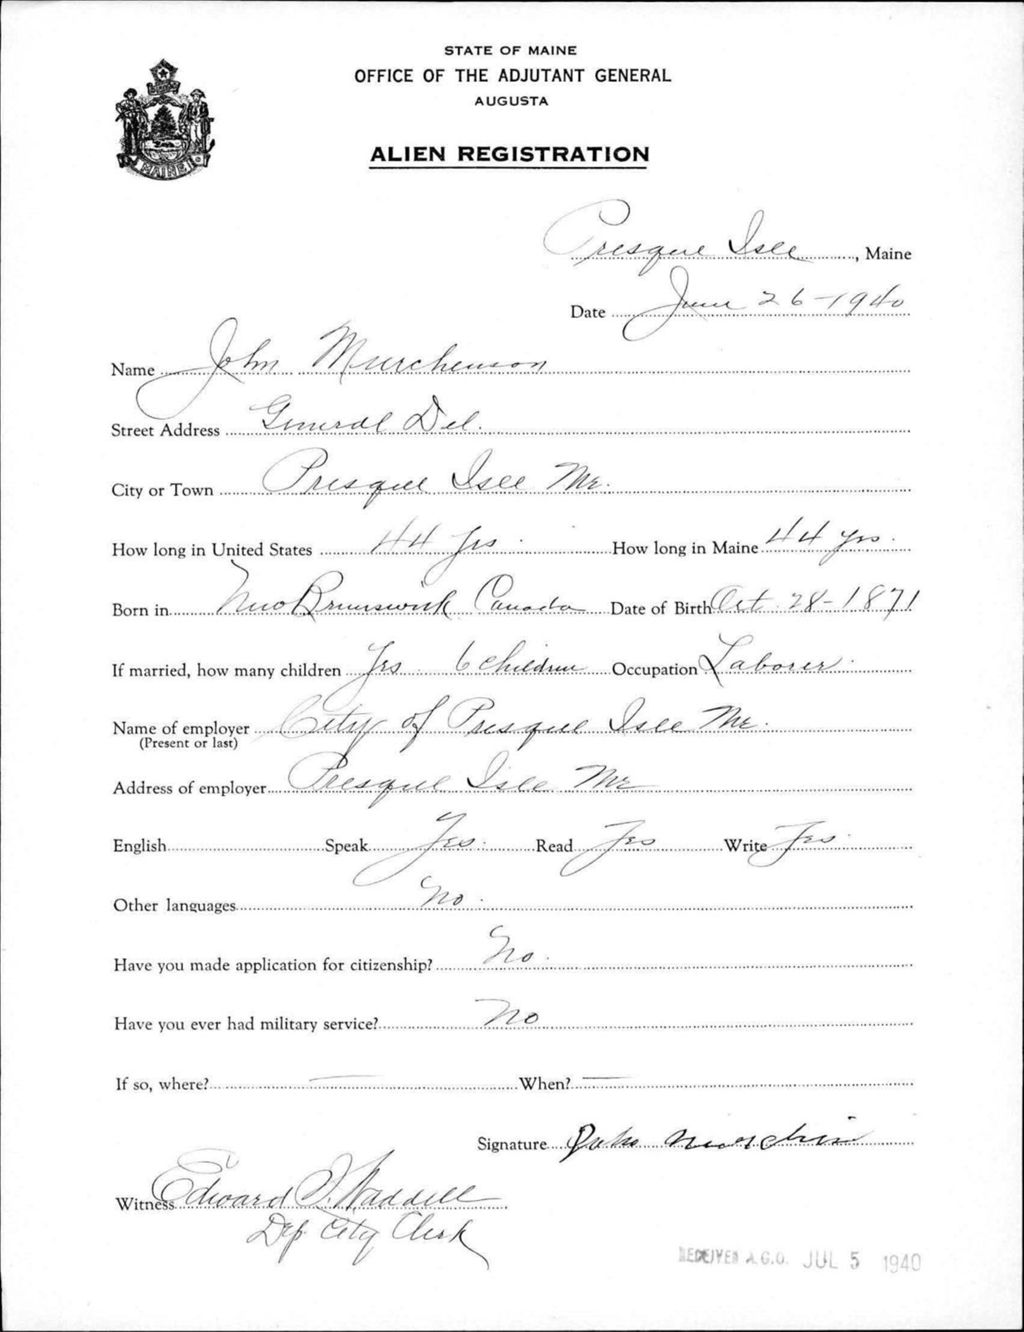 STATE OF MAINE
OFFICE OF THE ADJUTANT GENERAL
AUGUSTA
ALIEN REGISTRATION
MAINE
Presque Isle, Maine
Date June 26-1940
Name John Murchenson
Street Address General Del.
City or Town Presque Isle Me.
How long in United States 44 yrs. How long in Maine 44 yrs.
Born in New Brunswick Canada Date of Birth Oct. 28-1871
If married, how many children Yes. 6 Children Occupation Laborer.
Name of employer City of Presque Isle Me.
(Present or last)
Address of employer Presque Isle Me
English Speak Yes. Read Yes Write Yes.
Other languages No.
Have you made application for citizenship? No.
Have you ever had military service? No
If so, where? — When? —
Signature John
Witness Edward J. Waddell
Dep City Clerk
RECEIVED A.G.O. JUL 5 1940